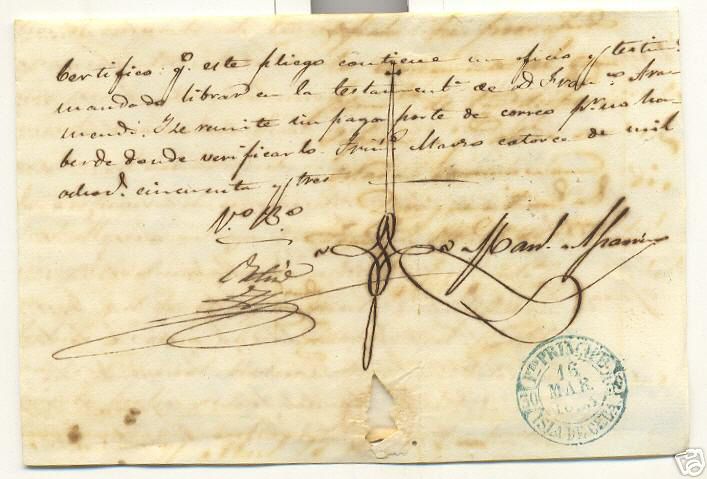 Certifico: q. este pliego contiene un oficio y testim.
mandado librar en la testament. de d. Fran.co Ara
mendi. I se remite sin pagar porte de correo p.r no ha-
ber de donde verificarlo. Marzo catorce de mil
ochoc. cincuenta y tres
V.o B.o
Man.l
P.TO PRINCIPE
16
MAR
ISLA DE CUBA